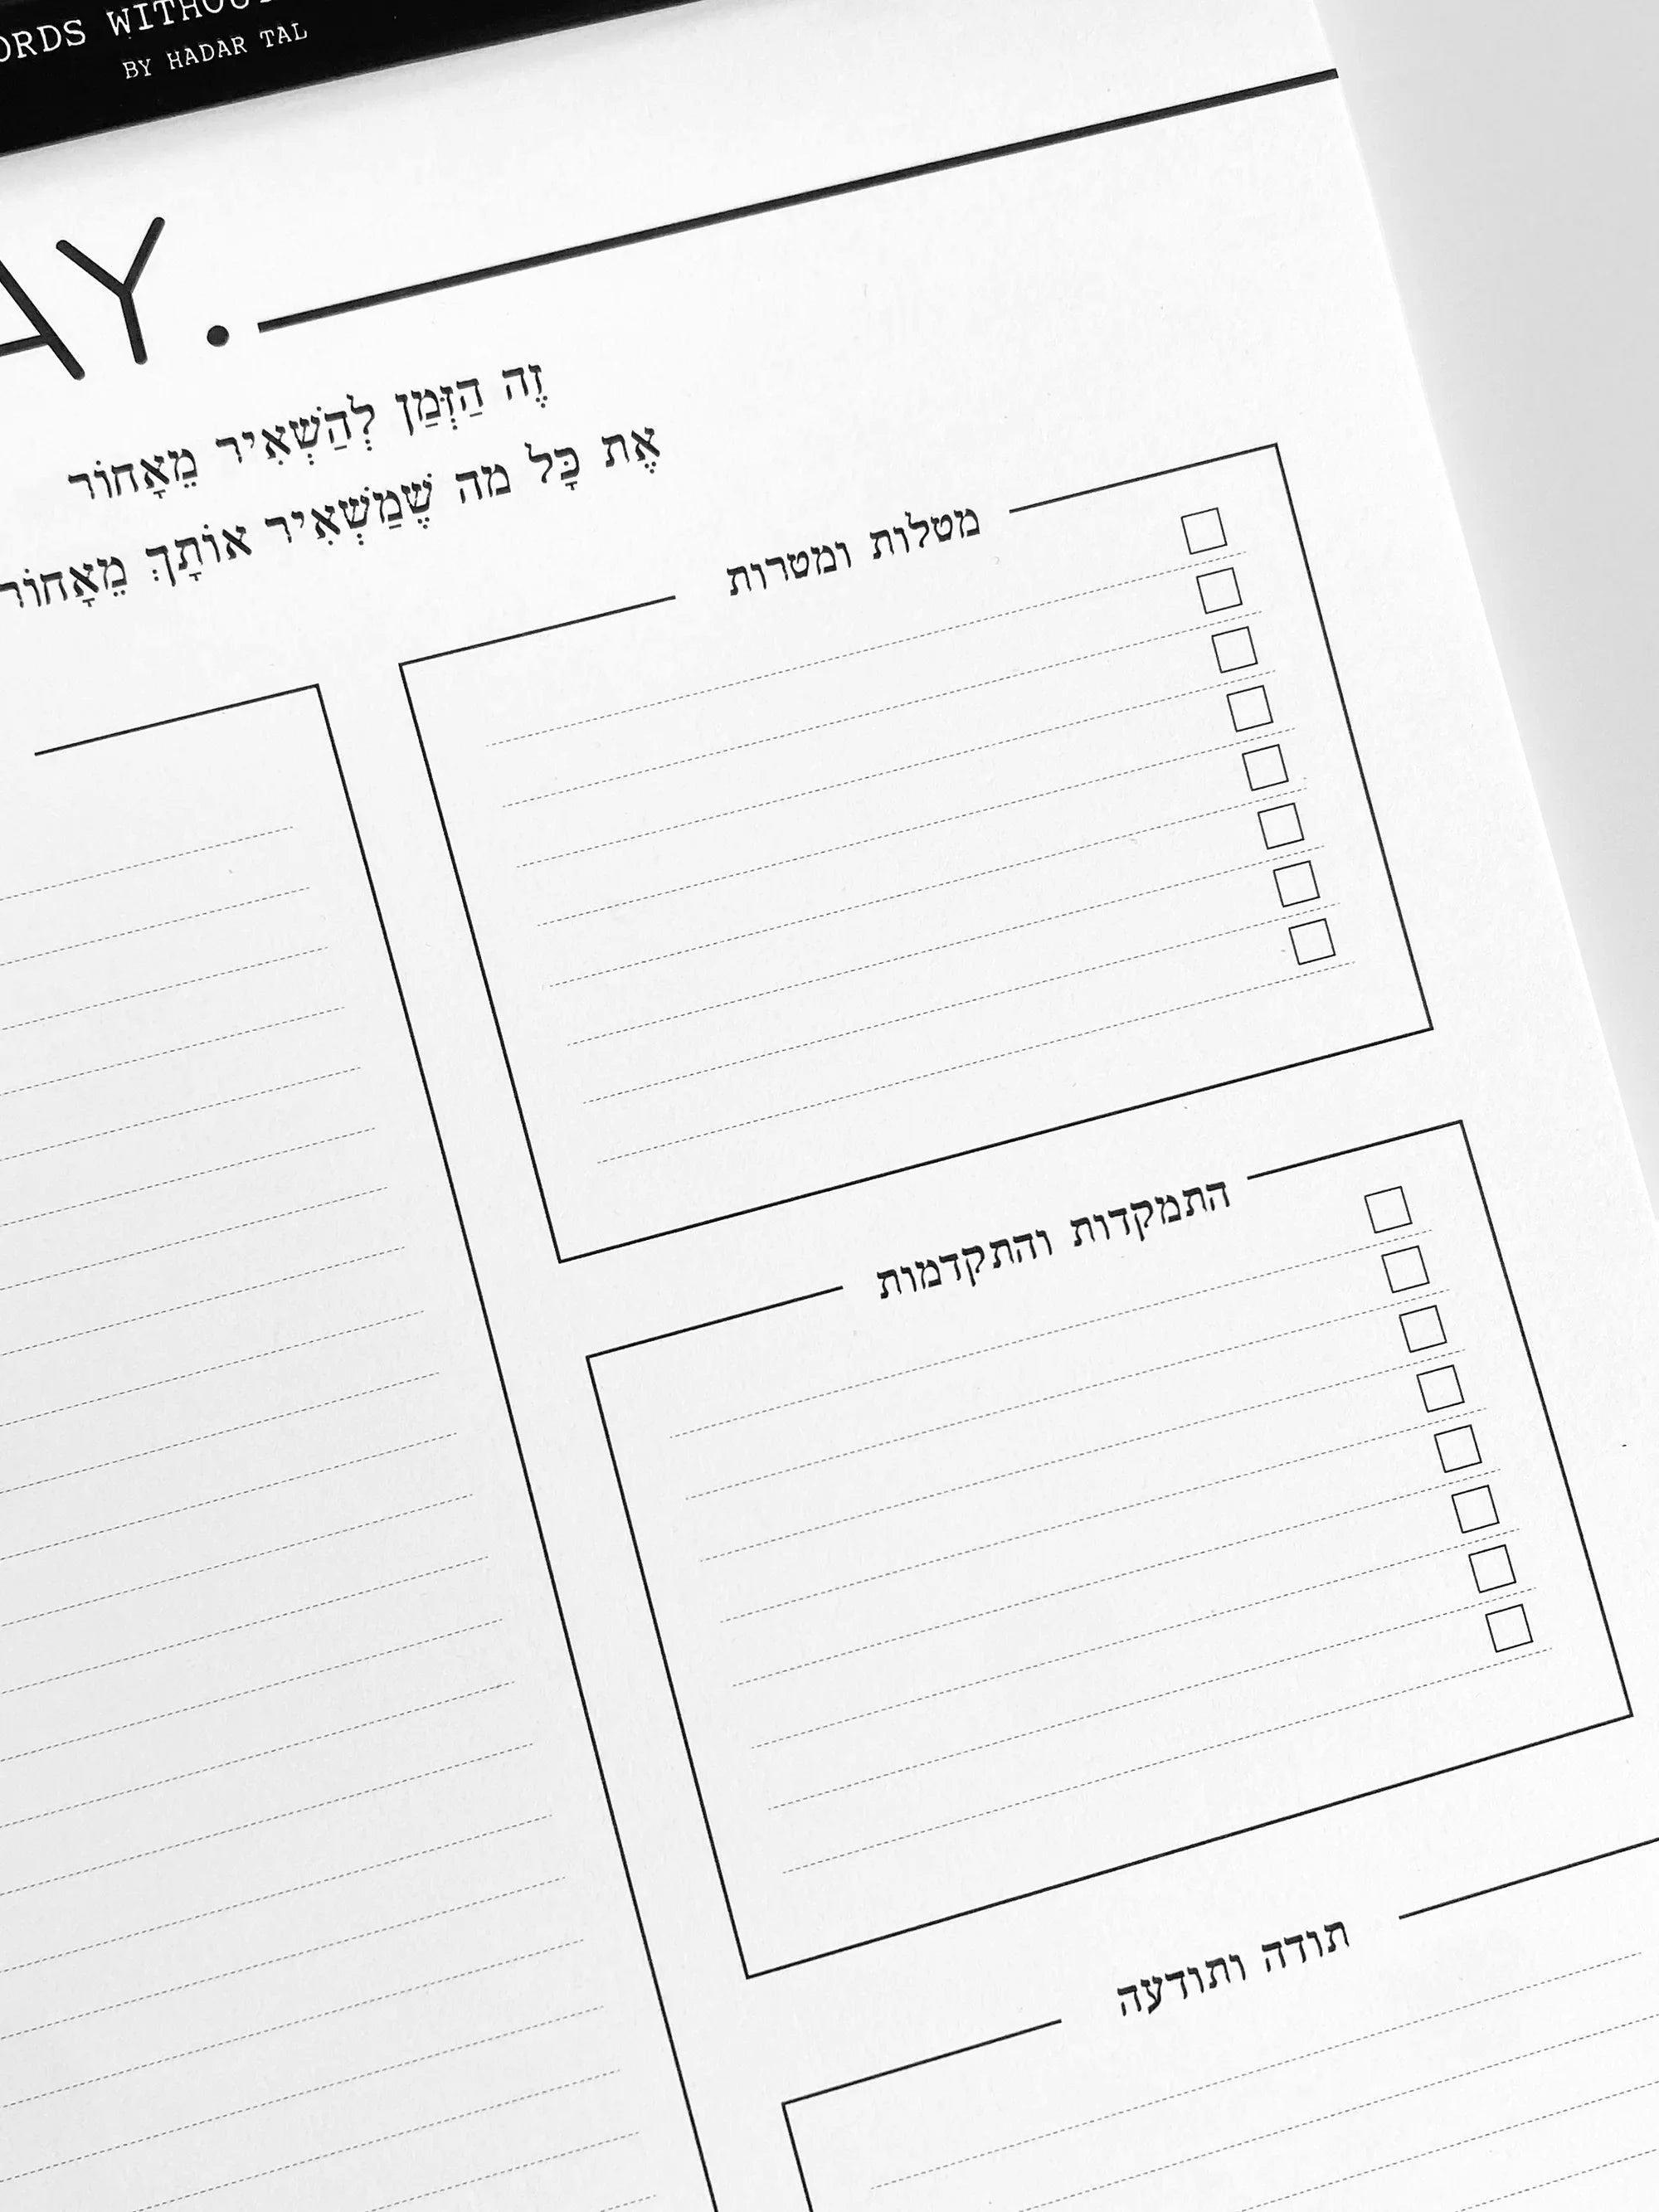 WITHOUT
BY HADAR TAL
AY.
זֶה הַזְּמַן לְהַשְׁאִיר מֵאָחוֹר
אֶת כָּל מה שֶׁמַשְׁאִיר אוֹתָךְ מֵאָחוֹר
מטלות ומטרות
התמקדות והתקדמות
תודה ותודעה